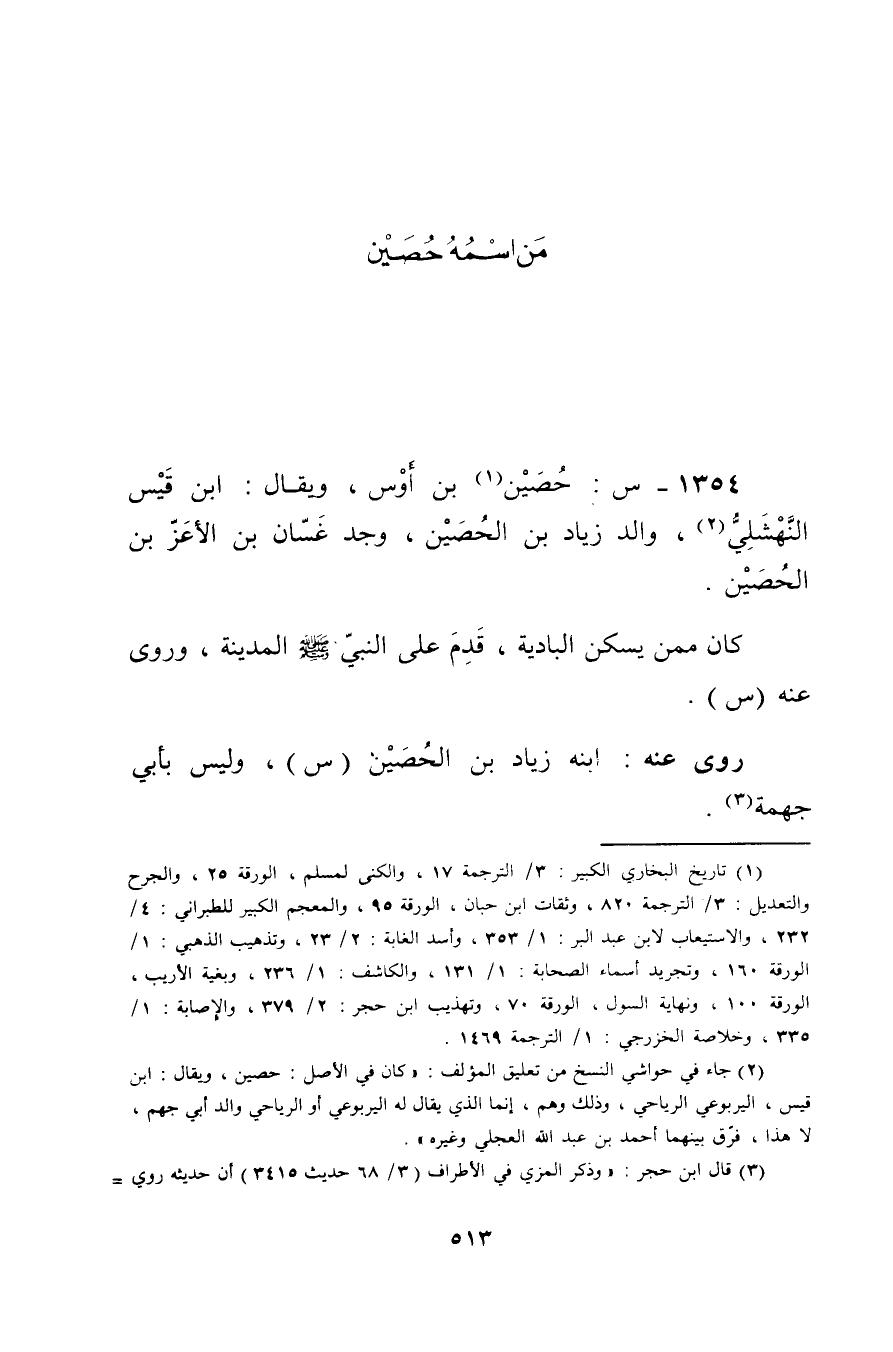 مَن اسْمُهُ حُصَيْن
١٣٥٤ ـ س : حُصَيْن(١) بن أَوْس ، ويقال : ابن قَيْس
النَّهْشَلِيُّ(٢) ، والد زياد بن الحُصَيْن ، وجد غَسّان بن الأعَزّ بن
الحُصَيْن .
كان ممن يسكن البادية ، قَدِمَ على النبيّ ﷺ المدينة ، وروى
عنه (س) .
روى عنه : ابنه زياد بن الحُصَيْن (س) ، وليس بأبي
جهمة(٣) .
(١) تاريخ البخاري الكبير : ٣/ الترجمة ١٧ ، والكنى لمسلم ، الورقة ٢٥ ، والجرح
والتعديل : ٣/ الترجمة ٨٢٠ ، وثقات ابن حبان ، الورقة ٩٥ ، والمعجم الكبير للطبراني : ٤/
٢٣٢ ، والاستيعاب لابن عبد البر : ١/ ٣٥٣ ، وأسد الغابة : ٢/ ٢٣ ، وتذهيب الذهبي : ١/
الورقة ١٦٠ ، وتجريد أسماء الصحابة : ١/ ١٣١ ، والكاشف : ١/ ٢٣٦ ، وبغية الأريب ،
الورقة ١٠٠ ، ونهاية السول ، الورقة ٧٠ ، وتهذيب ابن حجر : ٢/ ٣٧٩ ، والإصابة : ١/
٣٣٥ ، وخلاصة الخزرجي : ١/ الترجمة ١٤٦٩ .
(٢) جاء في حواشي النسخ من تعليق المؤلف : « كان في الأصل : حصين ، ويقال : ابن
قيس ، اليربوعي الرياحي ، وذلك وهم ، إنما الذي يقال له اليربوعي أو الرياحي والد أبي جهم ،
لا هذا ، فرّق بينهما أحمد بن عبد الله العجلي وغيره » .
(٣) قال ابن حجر : « وذكر المزي في الأطراف (٣/ ٦٨ حديث ٣٤١٥) أن حديثه روي =
٥١٣